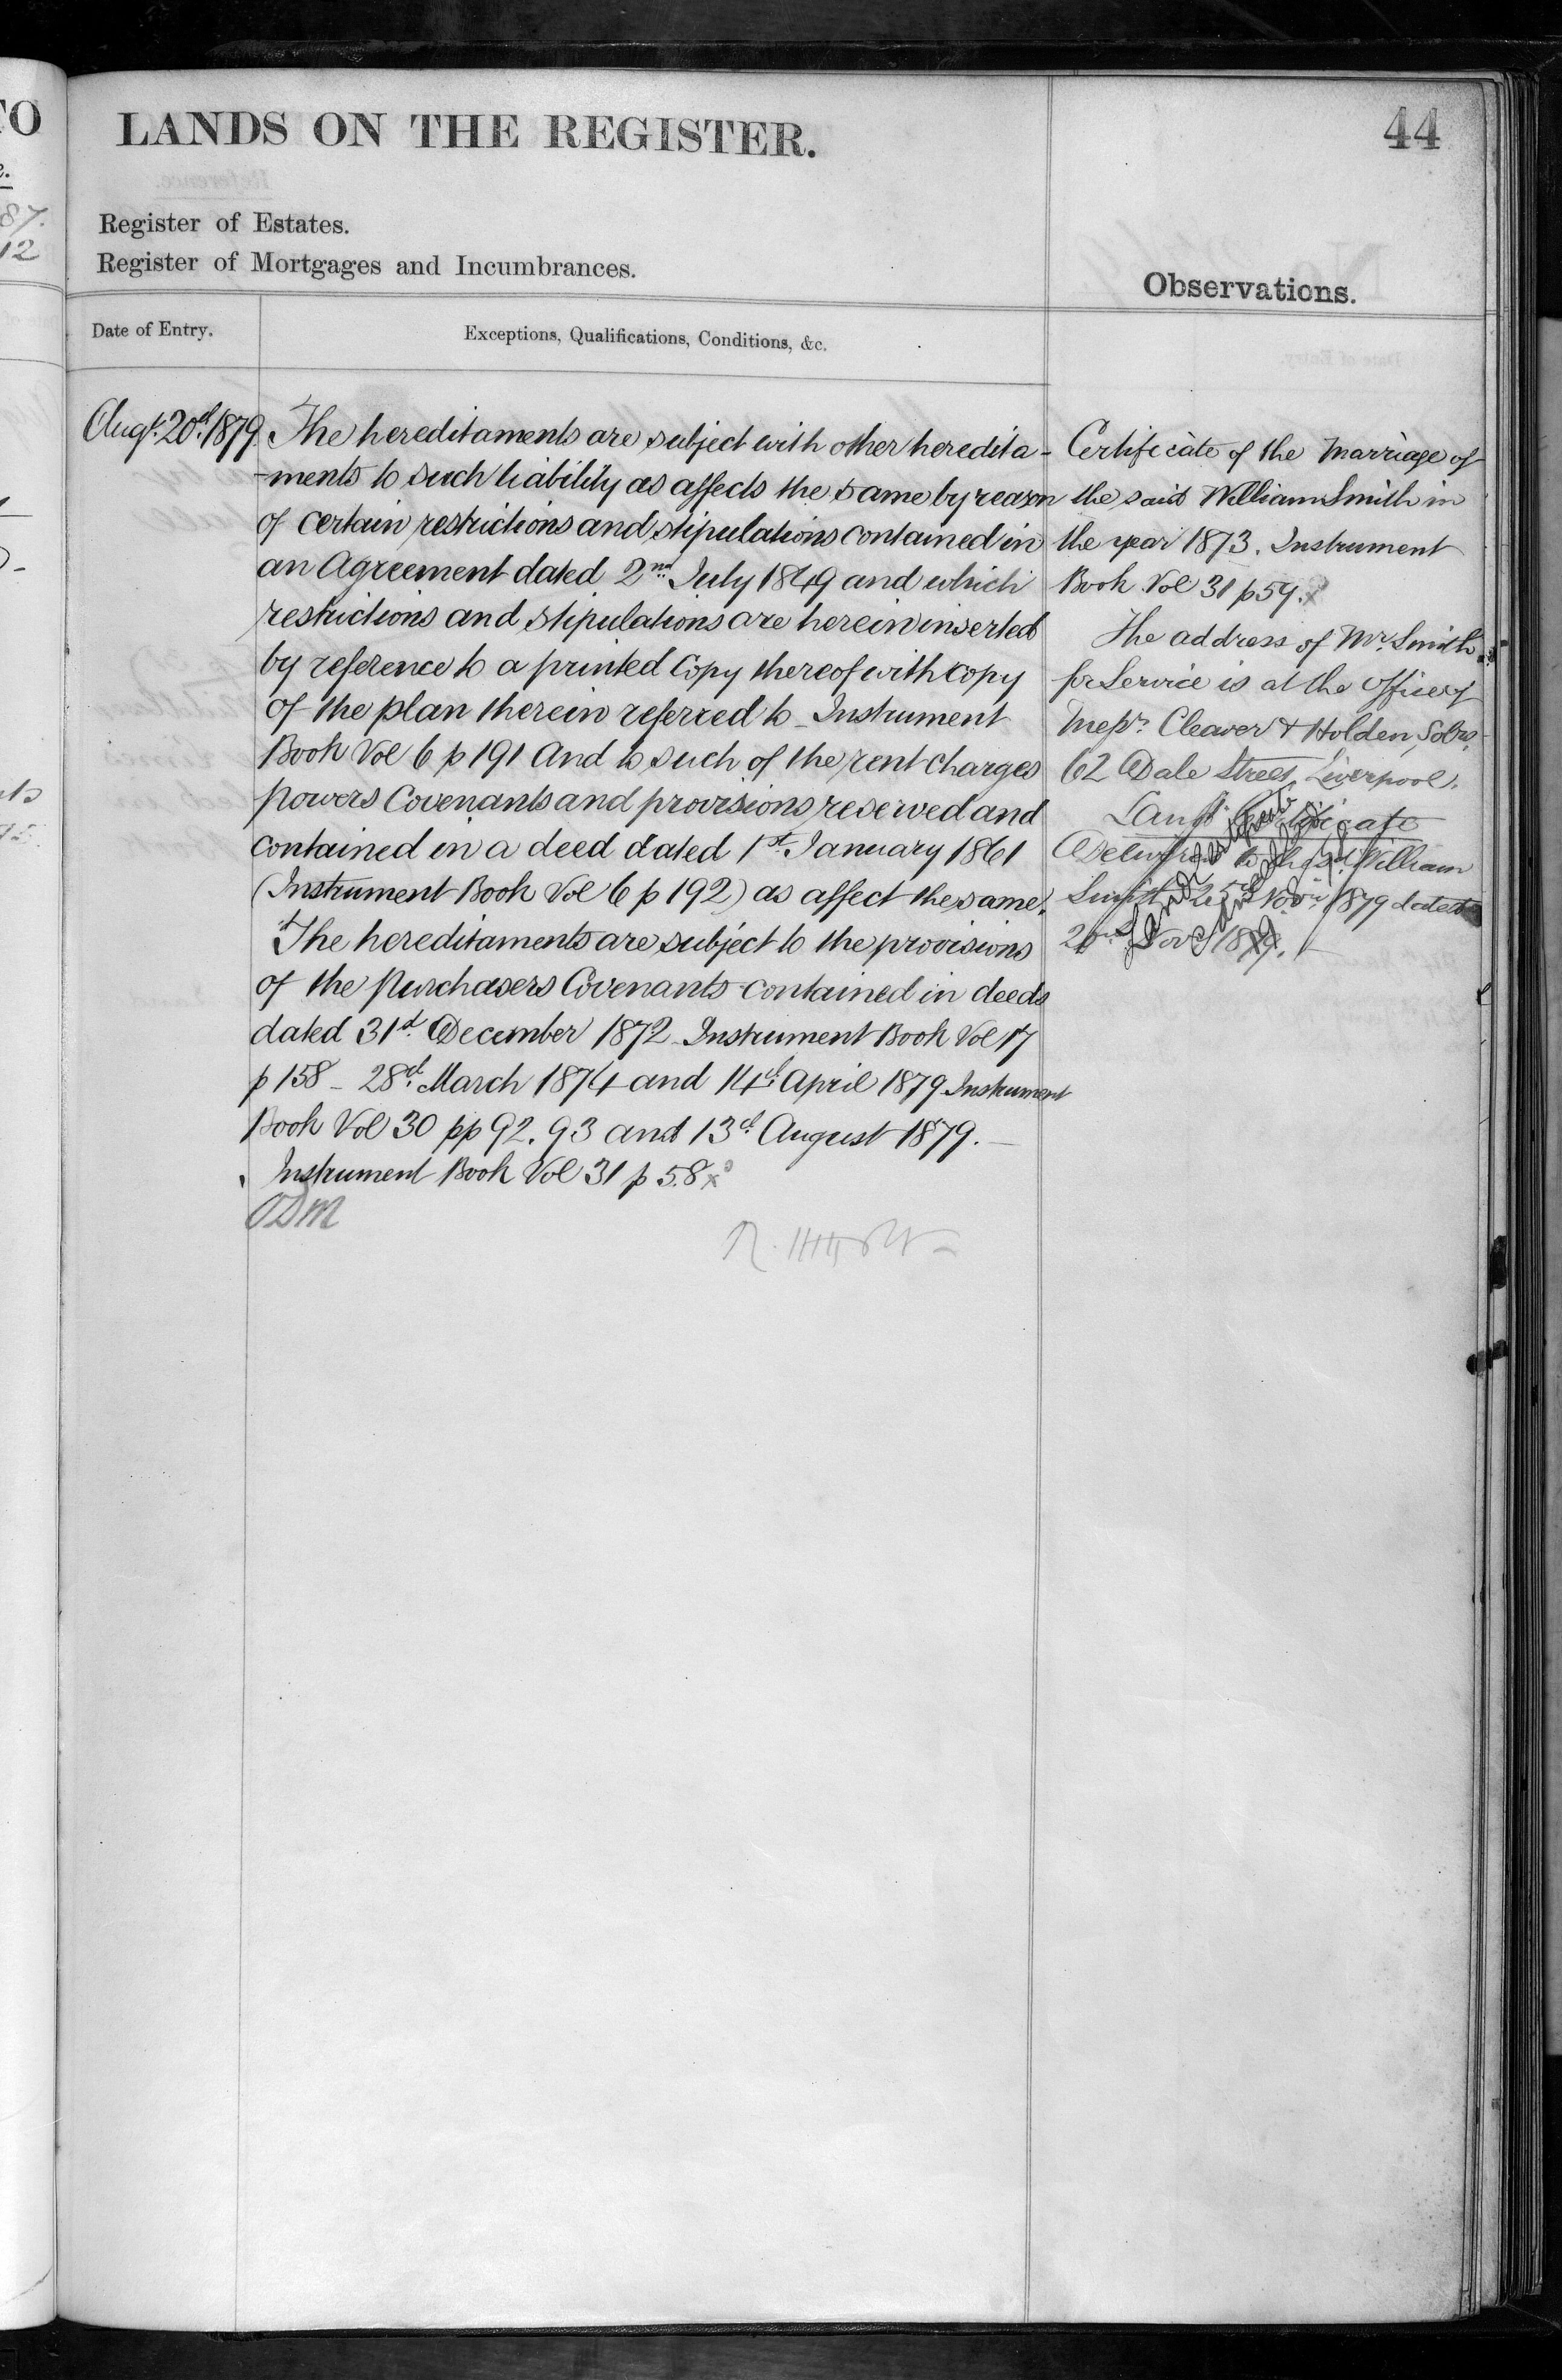 LANDS ON THE REGISTER.
44
Register of Estates.
Register of Mortgages and Incumbrances.
Observations.
Date of Entry.
Exceptions, Qualifications, Conditions, &c.
Augt. 20th 1879
The hereditaments are subject with other heredita-
-ments to such liability as affects the same by reason
of certain restrictions and stipulations contained in
an Agreement dated 2nd July 1849 and which
restrictions and stipulations are herein inserted
by reference to a printed Copy thereof with copy
of the plan therein referred to _ Instrument
Book Vol 6 p 191 And to such of the rent charges
powers Covenants and provisions reserved and
contained in a deed dated 1st January 1861
(Instrument Book Vol 6 p 192) as affect the same.
The hereditaments are subject to the provisions
of the Purchasers Covenants contained in deeds
dated 31st December 1872 _ Instrument Book Vol 17
p 158 _ 28th March 1874 and 14th April 1879 Instrument
Book Vol 30 pp 92. 93 and 13th August 1879. _
Instrument Book Vol 31 p 58 x
Certificate of the Marriage of
the said William Smith in
the year 1873. Instrument
Book Vol 31 p 59. x
The address of Mr. Smith
for Service is at the office of
Messrs. Cleaver & Holden, Solrs,
62 Dale Street, Liverpool.
Land Certificate
Delivered to the sd. William
Smith 25th Novr. 1879 dated
20th Novr 1879.
Land Certificate
Cancelled